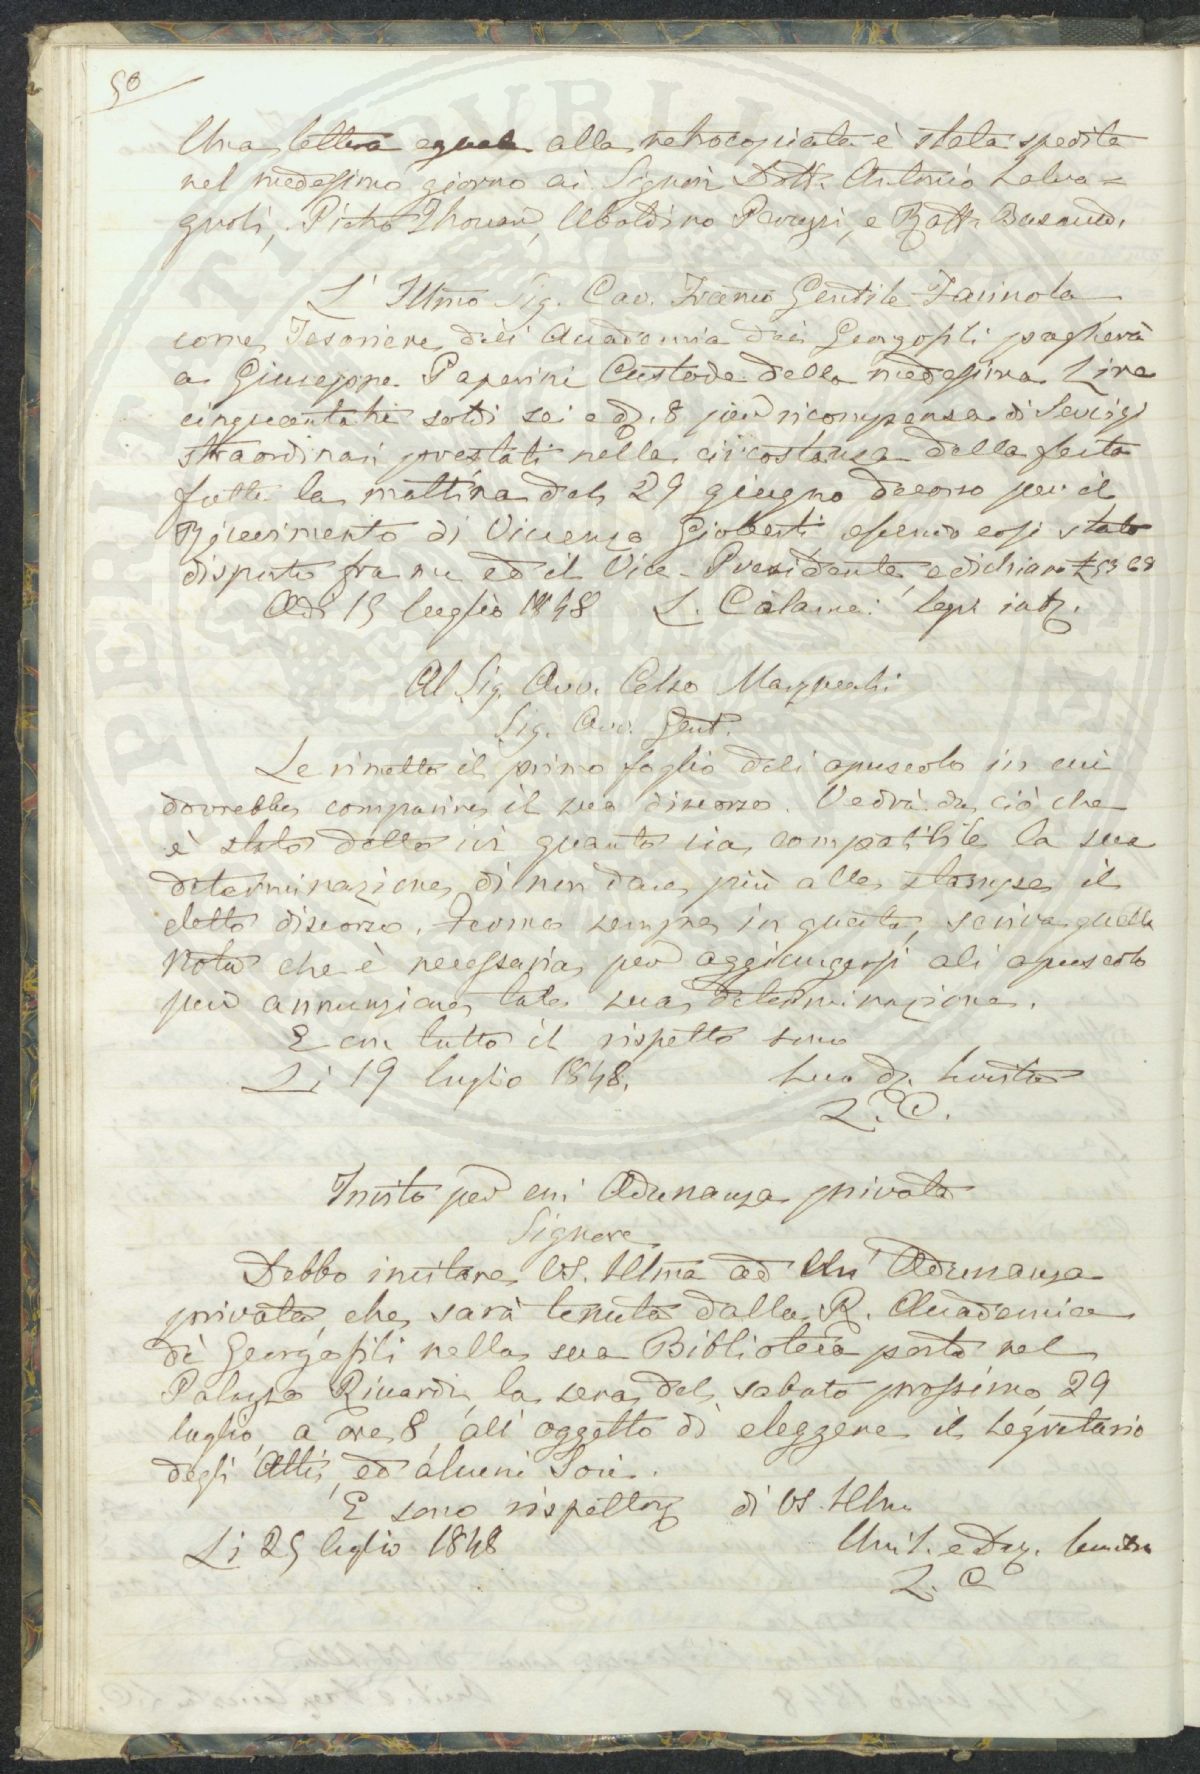 50
Una lettera eguale alla retrocopiata è stata spedita
nel medesimo giorno ai Signori Dott. Antonio Salva=
gnoli, Pietro Thouar, Ubaldino Peruzzi, e Raff. Busacca.
L' Illmo Sig. Cav. Gentile Farinola
come Tesoriere dell'Accademia dei Georgofili pagherà
a Giuseppe Paperini Custode della medesima Lire
cinquantatre soldi sei e d. 8 per ricompensa di Servigi
straordinari prestati nella circostanza della festa
fatta la mattina del 29 giugno decorso per il
Ricevimento di Vincenzo Gioberti essendo così stato
disposto fra me ed il Vice-Presidente, e dichiaro £53 6 8
Adì 15 luglio 1848 L. Calamai Segr int.
Al Sig. Avv. Celso Marzucchi
Sig. Avv. Gent.
Le rimetto il primo foglio dell'opuscolo in cui
dovrebbe comparire il suo discorso. Vedrà da ciò che
è stato detto ivi quanto sia compatibile la sua
determinazione di non dare più alle stampe il
detto discorso. Fermo sempre in questa, scriva quella
Nota che è necessaria per aggiungersi all'opuscolo
per annunziare tale sua determinazione.
E con tutto il rispetto sono
Li 19 luglio 1848. Suo d.
L. C.
Invito per un' Adunanza privata
Signore
Debbo invitare VS. Illma ad Un' Adunanza
privata, che sarà tenuta dalla R. Accademia
dè Georgofili nella sua Biblioteca posta nel
Palazzo Riccardi, la sera del sabato prossimo, 29
luglio, a ore 8, all'oggetto di eleggere il Segretario
degli Atti, ed alcuni Soci.
E sono rispettoz di VS. Illma
Li 25 luglio 1848 Umil. e Dev.
L. C